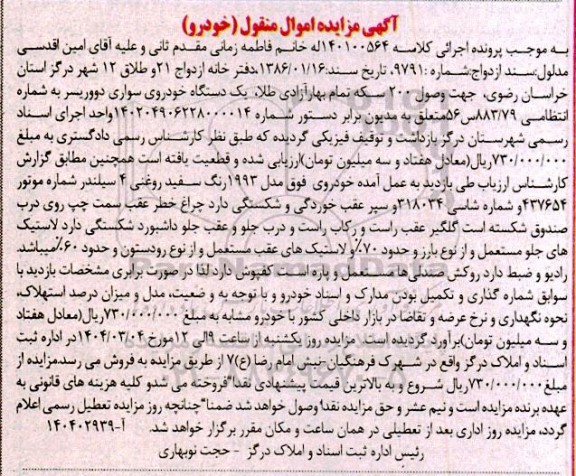 آگهی مزایده اموال منقول (خودرو)
به موجب پرونده اجرائی کلاسه ۱۴۰۱۰۰۵۶۴ له خانم فاطمه زمانی مقدم ثانی و علیه آقای امین اقدسی
مدلول سند ازدواج: شماره: ۹۷۹۱، تاریخ سند: ۱۳۸۶/۰۱/۱۶، دفتر خانه ازدواج ۲۱ و طلاق ۱۲ شهر درگز استان
خراسان رضوی، جهت وصول ۲۰۰ سکه تمام بهار آزادی طلا، یک دستگاه خودروی سواری دوو ریسر به شماره
انتظامی ۸۸۳/۷۹س۵۶ متعلق به مدیون برابر دستور شماره ۱۴۰۲۰۴۹۰۶۲۲۸۰۰۰۰۱۴ واحد اجرای اسناد
رسمی شهرستان درگز بازداشت و توقیف فیزیکی گردیده که طبق نظر کارشناس رسمی دادگستری به مبلغ
۷۳۰/۰۰۰/۰۰۰ریال(معادل هفتاد و سه میلیون تومان)ارزیابی شده و قطعیت یافته است همچنین مطابق گزارش
کارشناس ارزیاب طی بازدید به عمل آمده خودروی فوق مدل ۱۹۹۳ رنگ سفید روغنی ۴ سیلندر شماره موتور
۴۳۷۶۵۴ و شماره شاسی ۳۱۸۰۳۴ و سپر عقب خوردگی و شکستگی دارد چراغ خطر عقب سمت چپ روی درب
صندوق شکسته است گلگیر عقب راست و رکاب راست و درب جلو و عقب جلو داشبورد شکستگی دارد لاستیک
های جلو مستعمل و از نوع بارز و حدود ۷۰٪ و لاستیک های عقب مستعمل و از نوع رودستون و حدود ۶۰٪ میباشد.
رادیو و ضبط دارد روکش صندلی ها مستعمل و پاره است کفپوش دارد لذا در صورت برابری مشخصات بازدید با
سوابق شماره گذاری و تکمیل بودن مدارک و اسناد خودرو و با توجه به و ضعیت، مدل و میزان درصد استهلاک،
نحوه نگهداری و نرخ عرضه و تقاضا در بازار داخلی کشور با خودرو مشابه به مبلغ ۷۳۰/۰۰۰/۰۰۰ریال(معادل هفتاد
و سه میلیون تومان)برآورد گردیده است. مزایده روز یکشنبه از ساعت ۹ الی ۱۲ مورخ ۱۴۰۴/۰۳/۰۴ در اداره ثبت
اسناد و املاک درگز واقع در شهرک فرهنگیان-نبش امام رضا (ع)۷ از طریق مزایده به فروش می رسد.مزایده از
مبلغ ۷۳۰/۰۰۰/۰۰۰ریال شروع و به بالاترین قیمت پیشنهادی نقدا"فروخته می شدو کلیه هزینه های قانونی به
عهده برنده مزایده است و نیم عشر و حق مزایده نقدا وصول خواهد شد ضمنا"چنانچه روز مزایده تعطیل رسمی اعلام
گردد، مزایده روز اداری بعد از تعطیلی در همان ساعت و مکان مقرر برگزار خواهد شد. آ-۱۴۰۴۰۲۹۳۹
رئیس اداره ثبت اسناد و املاک درگز - حجت نوبهاری